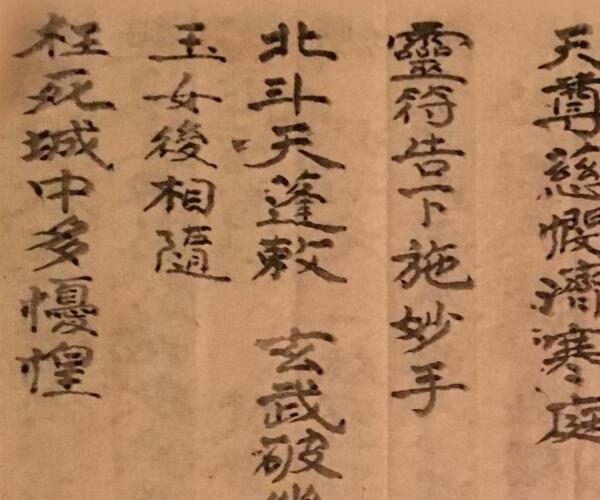 天尊慈憫濟寒庭
靈符告下施妙手
北斗天蓬敕 玄武破
玉女後相隨
枉死城中多憂惶